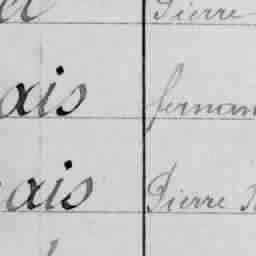 Pierre
ais fernan
ais Pierre